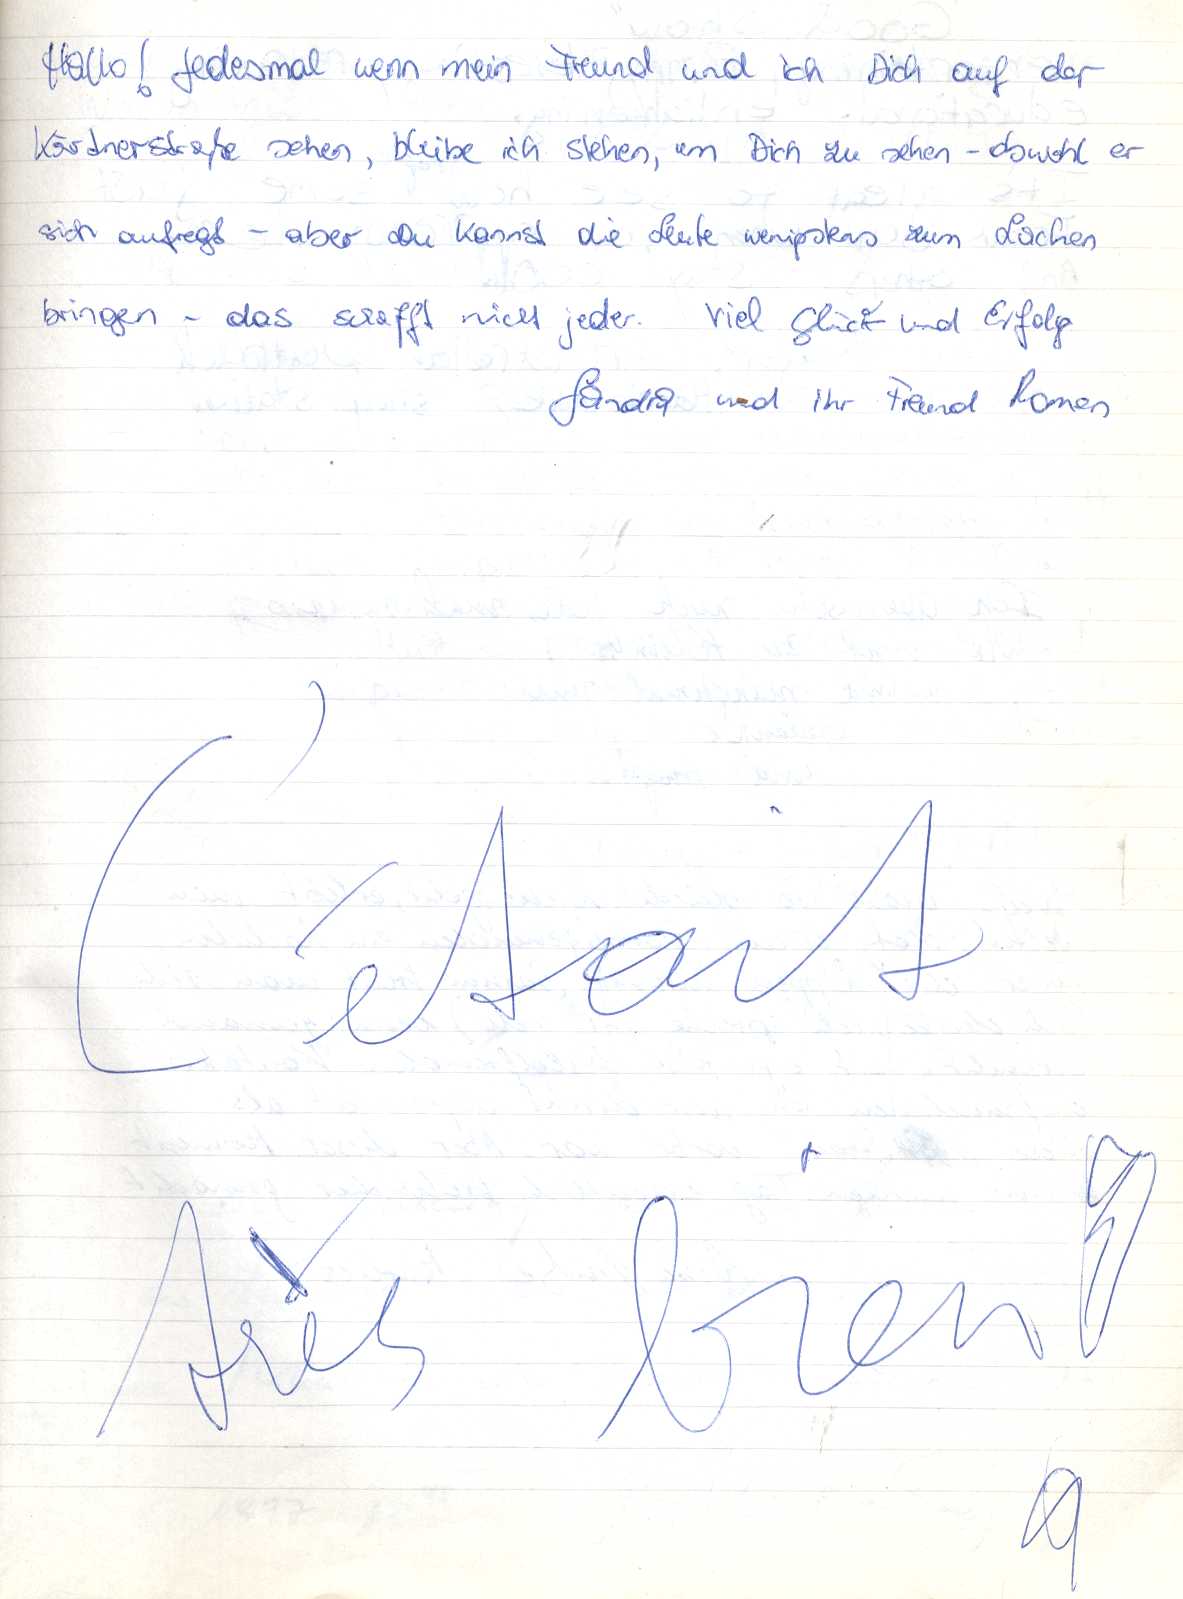 Hallo! Jedesmal wenn mein Freund und ich Dich auf der
Kärdnerstraße sehen, bleibe ich stehen, um Dich zu sehen – obwohl er
sich aufregt – aber du kannst die Leute wenigstens zum Lachen
bringen – das schafft nicht jeder. Viel Glück und Erfolg
Sandra und ihr Freund Roman
C'etait
très bien!